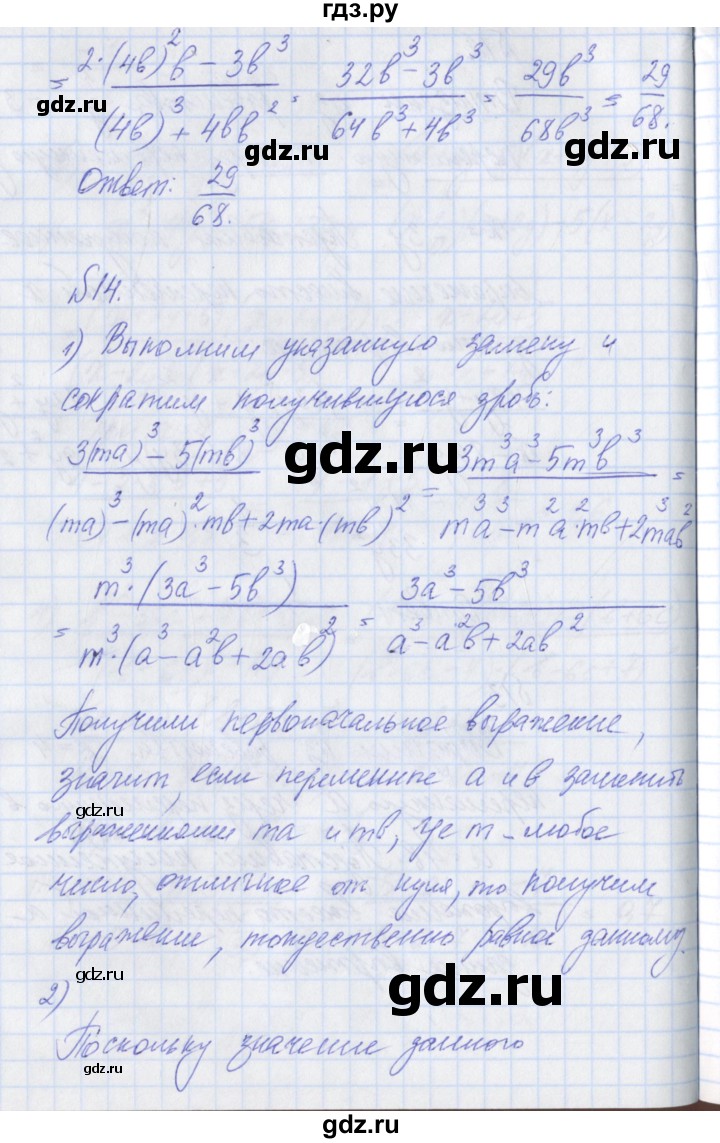 гдз.ру
= 2·(4в)²в − 3в³ / (4в)³ + 4вв² = 32в³ − 3в³ / 64в³ + 4в³ = 29в³ / 68в³ = 29/68.
gdz.ru
gdz.ru
Ответ: 29/68.
gdz.ru
№14.
1) Выполним указанную замену и
сократим получившуюся дробь:
gdz.ru
3(ma)³ − 5(mв)³ / (ma)³ − (ma)²·mв + 2ma·(mв)² = 3m³a³ − 5m³в³ / m³a³ − m²a²·mв + 2m³aв² =
= m³·(3a³ − 5в³) / m³·(a³ − a²в + 2aв²) = 3a³ − 5в³ / a³ − a²в + 2aв²
Получили первоначальное выражение,
gdz.ru
значит, если переменные a и в заменить
выражениями ma и mв, где m – любое
число, отличное от нуля, то получим
gdz.ru
выражение, тождественно равное данному.
gdz.ru
gdz.ru
2)
Поскольку значение данного
gdz.ru
gdz.ru